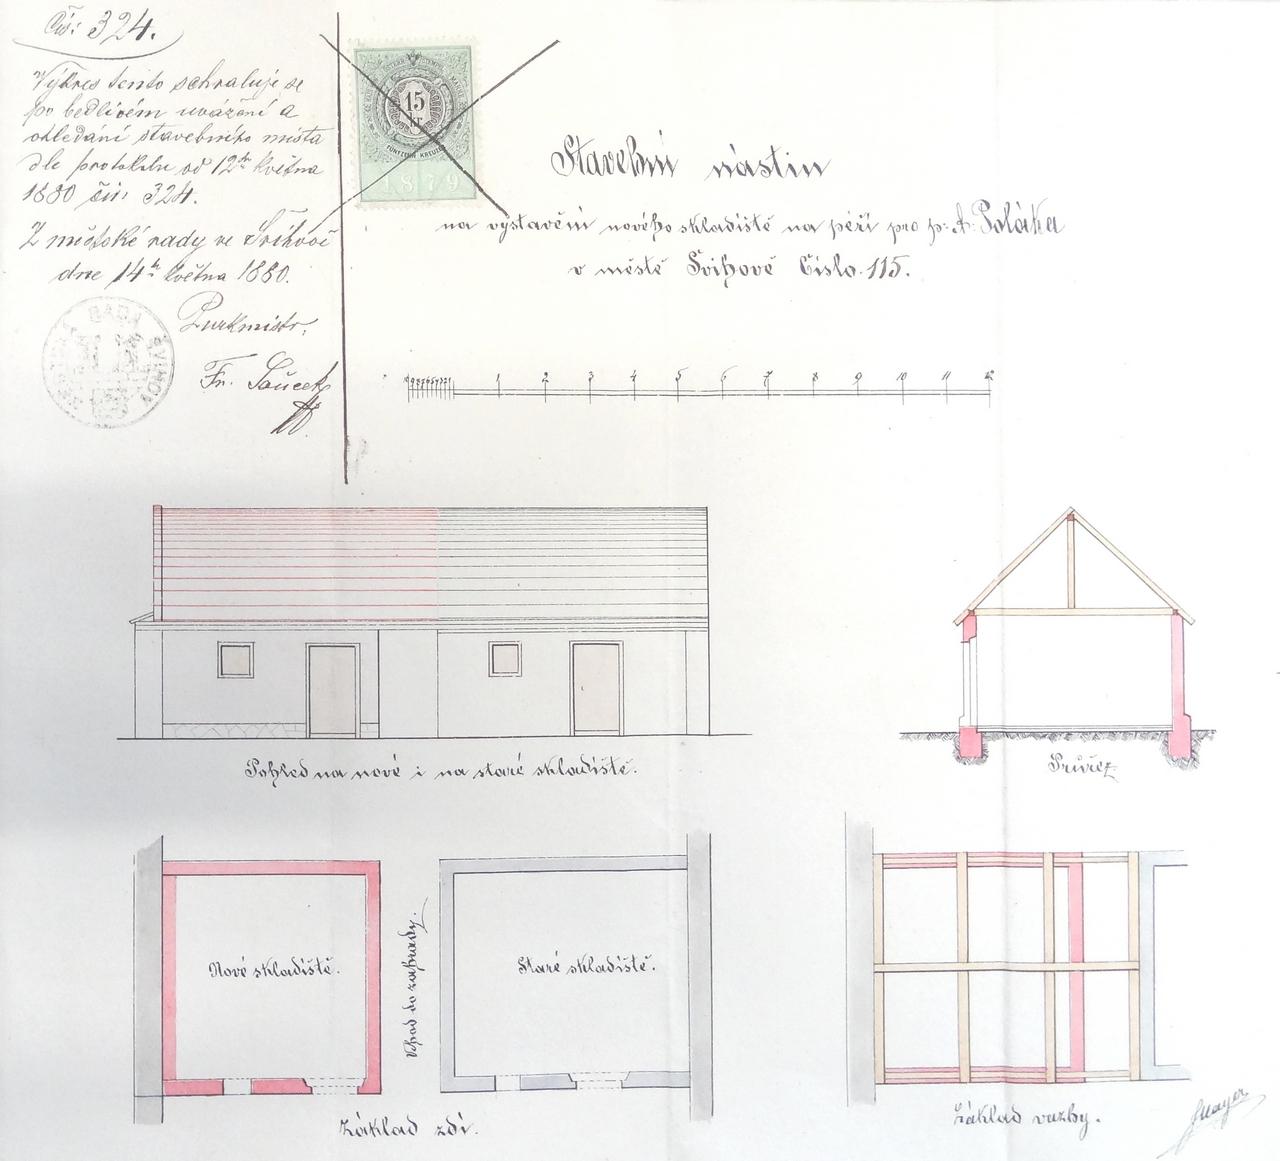 Čís: 324.
Výkres tento schvaluje se
po bedlivém uvážení a
ohledání stavebního místa
dle protokolu od 12ho května
1880 čís: 324.
Z městské rady ve Švihově
dne 14ho května 1880.
Purkmistr:
Fr. Souček
15
kr.
FÜNFZEHN KREUZER
1879
Stavební nástin
na vystavění nového skladiště na péří pro p: A. Poláka
v městě Švihově Číslo 115.
10 9 8 7 6 5 4 3 2 1 1 2 3 4 5 6 7 8 9 10 11 12
Pohled na nové i na staré skladiště.
Průřez
Nové skladiště.
Vchod do zahrady.
Staré skladiště.
Základ zdí.
Základ vazby.
Mayer